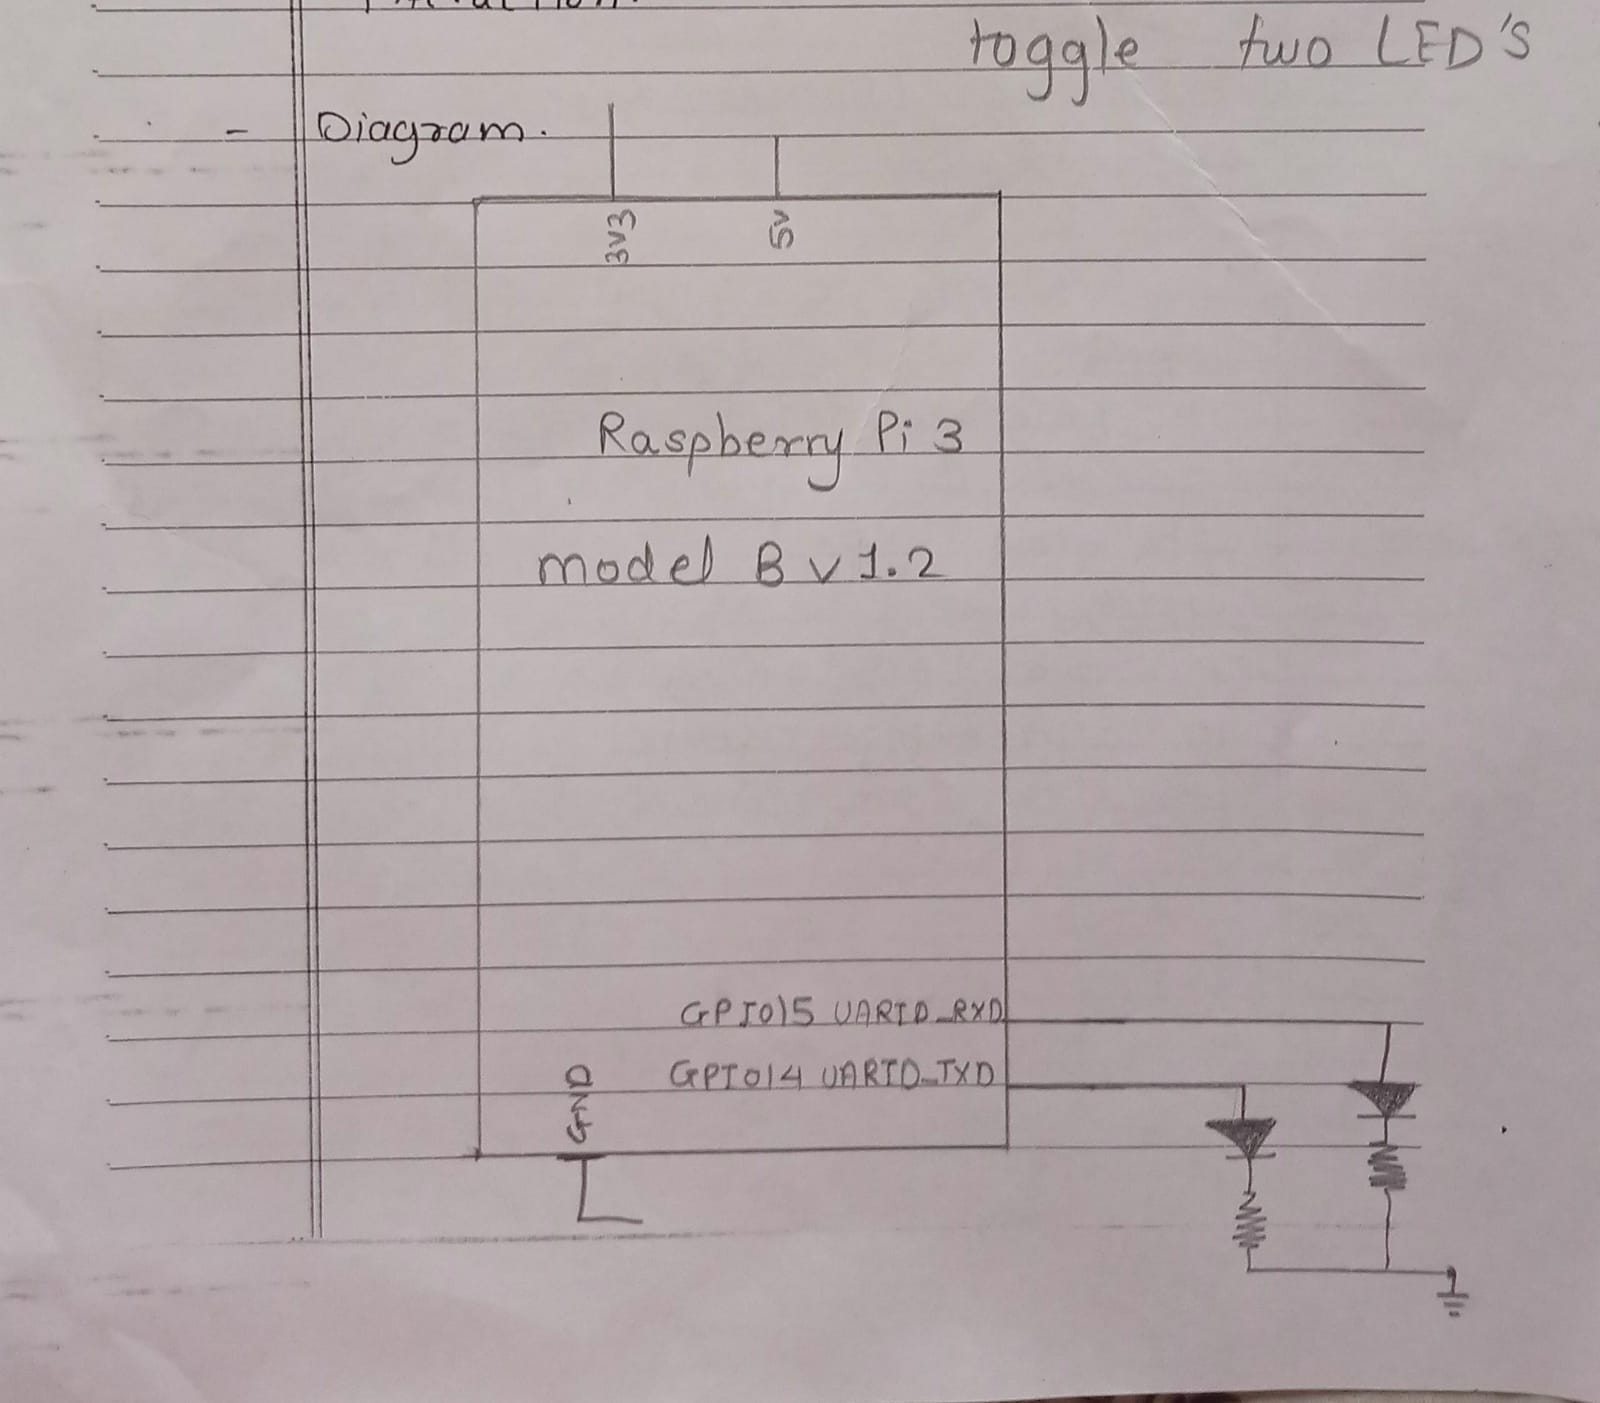 toggle two LED's
- Diagram.
3V3
5V
Raspberry Pi 3
model B v 1.2
GPIO15 UART0_RXD
GPIO14 UART0_TXD
GND